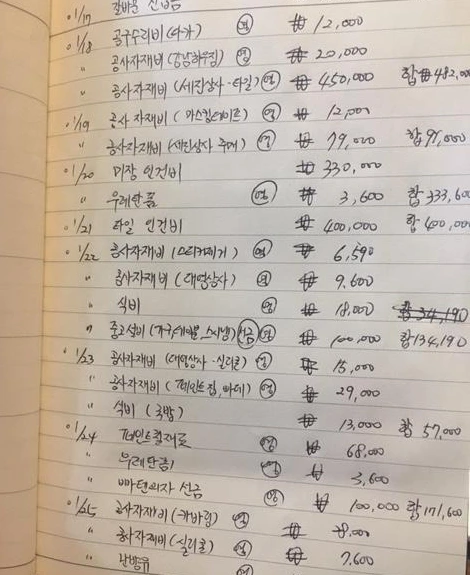 1/17 신발 선금
1/18 공구수리비 (타카) 영 ₩ 12,000
〃 공사자재비 (강남하우징) 영 ₩ 20,000
〃 공사자재비 (세진상사-타일) 영 ₩ 450,000 합 ₩482,00
1/19 공사자재비 (마스킹테이프) 영 ₩ 12,000
〃 공사자재비 (세진상사 주메) 영 ₩ 79,000 합 91,000
1/20 미장 인건비 ₩ 330,000
〃 우레탄폼 영 ₩ 3,600 합 333,600
1/21 타일 인건비 ₩ 400,000 합 400,000
1/22 공사자재비 (스티커제거) 영 ₩ 6,590
〃 공사자재비 (대영상사) 영 ₩ 9,600
〃 식비 영 ₩ 18,000 합 34,190
〃 중고설비 (가구,테이블) 영 ₩ 100,000 합134,190
1/23 공사자재비 (대영상사-실리콘) 영 ₩ 15,000
〃 공사자재비 (페인트집, 빠데) 영 ₩ 29,000
〃 식비 (국밥) ₩ 13,000 합 57,000
1/24 페인트칠재료 영 ₩ 68,000
〃 우레탄폼 영 ₩ 3,600
〃 빠텐의자 선금 영 ₩ 100,000 합 171,600
1/25 공사자재비 영 ₩
〃 공사자재비 (실리콘) 영 ₩ 7,600
〃 난방유 영